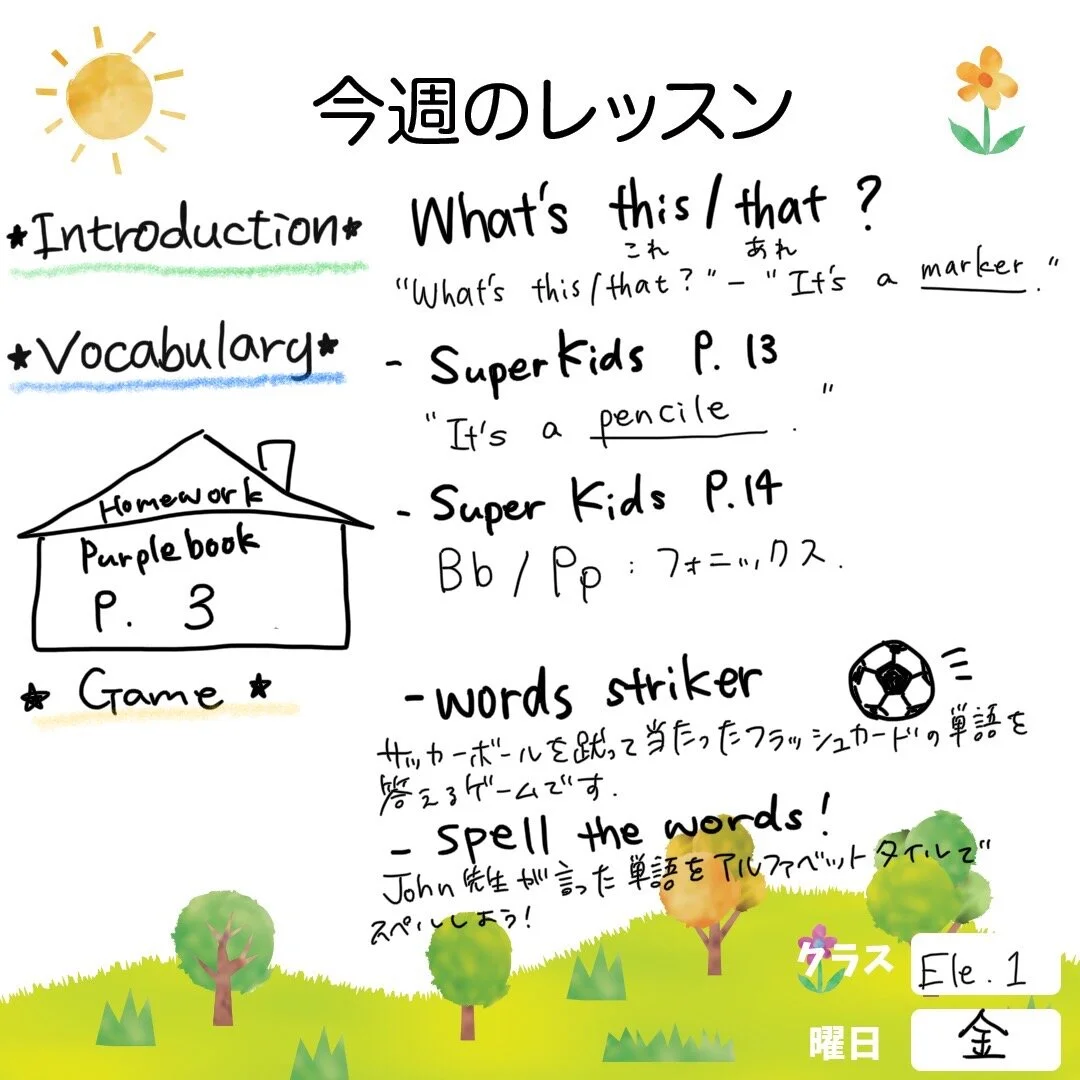 今週のレッスン
★Introduction★
What's this/that ?
これ あれ
"What's this/that?" - "It's a marker."
★Vocabulary★
- Super Kids P. 13
"It's a pencile."
- Super Kids P.14
Bb / Pp : フォニックス.
Homework
Purple book
P. 3
★ Game ★
- words striker
サッカーボールを蹴って当たったフラッシュカードの単語を
答えるゲームです.
- spell the words!
John先生が言った単語をアルファベットタイルで
スペルしよう!
クラス Ele. 1
曜日 金